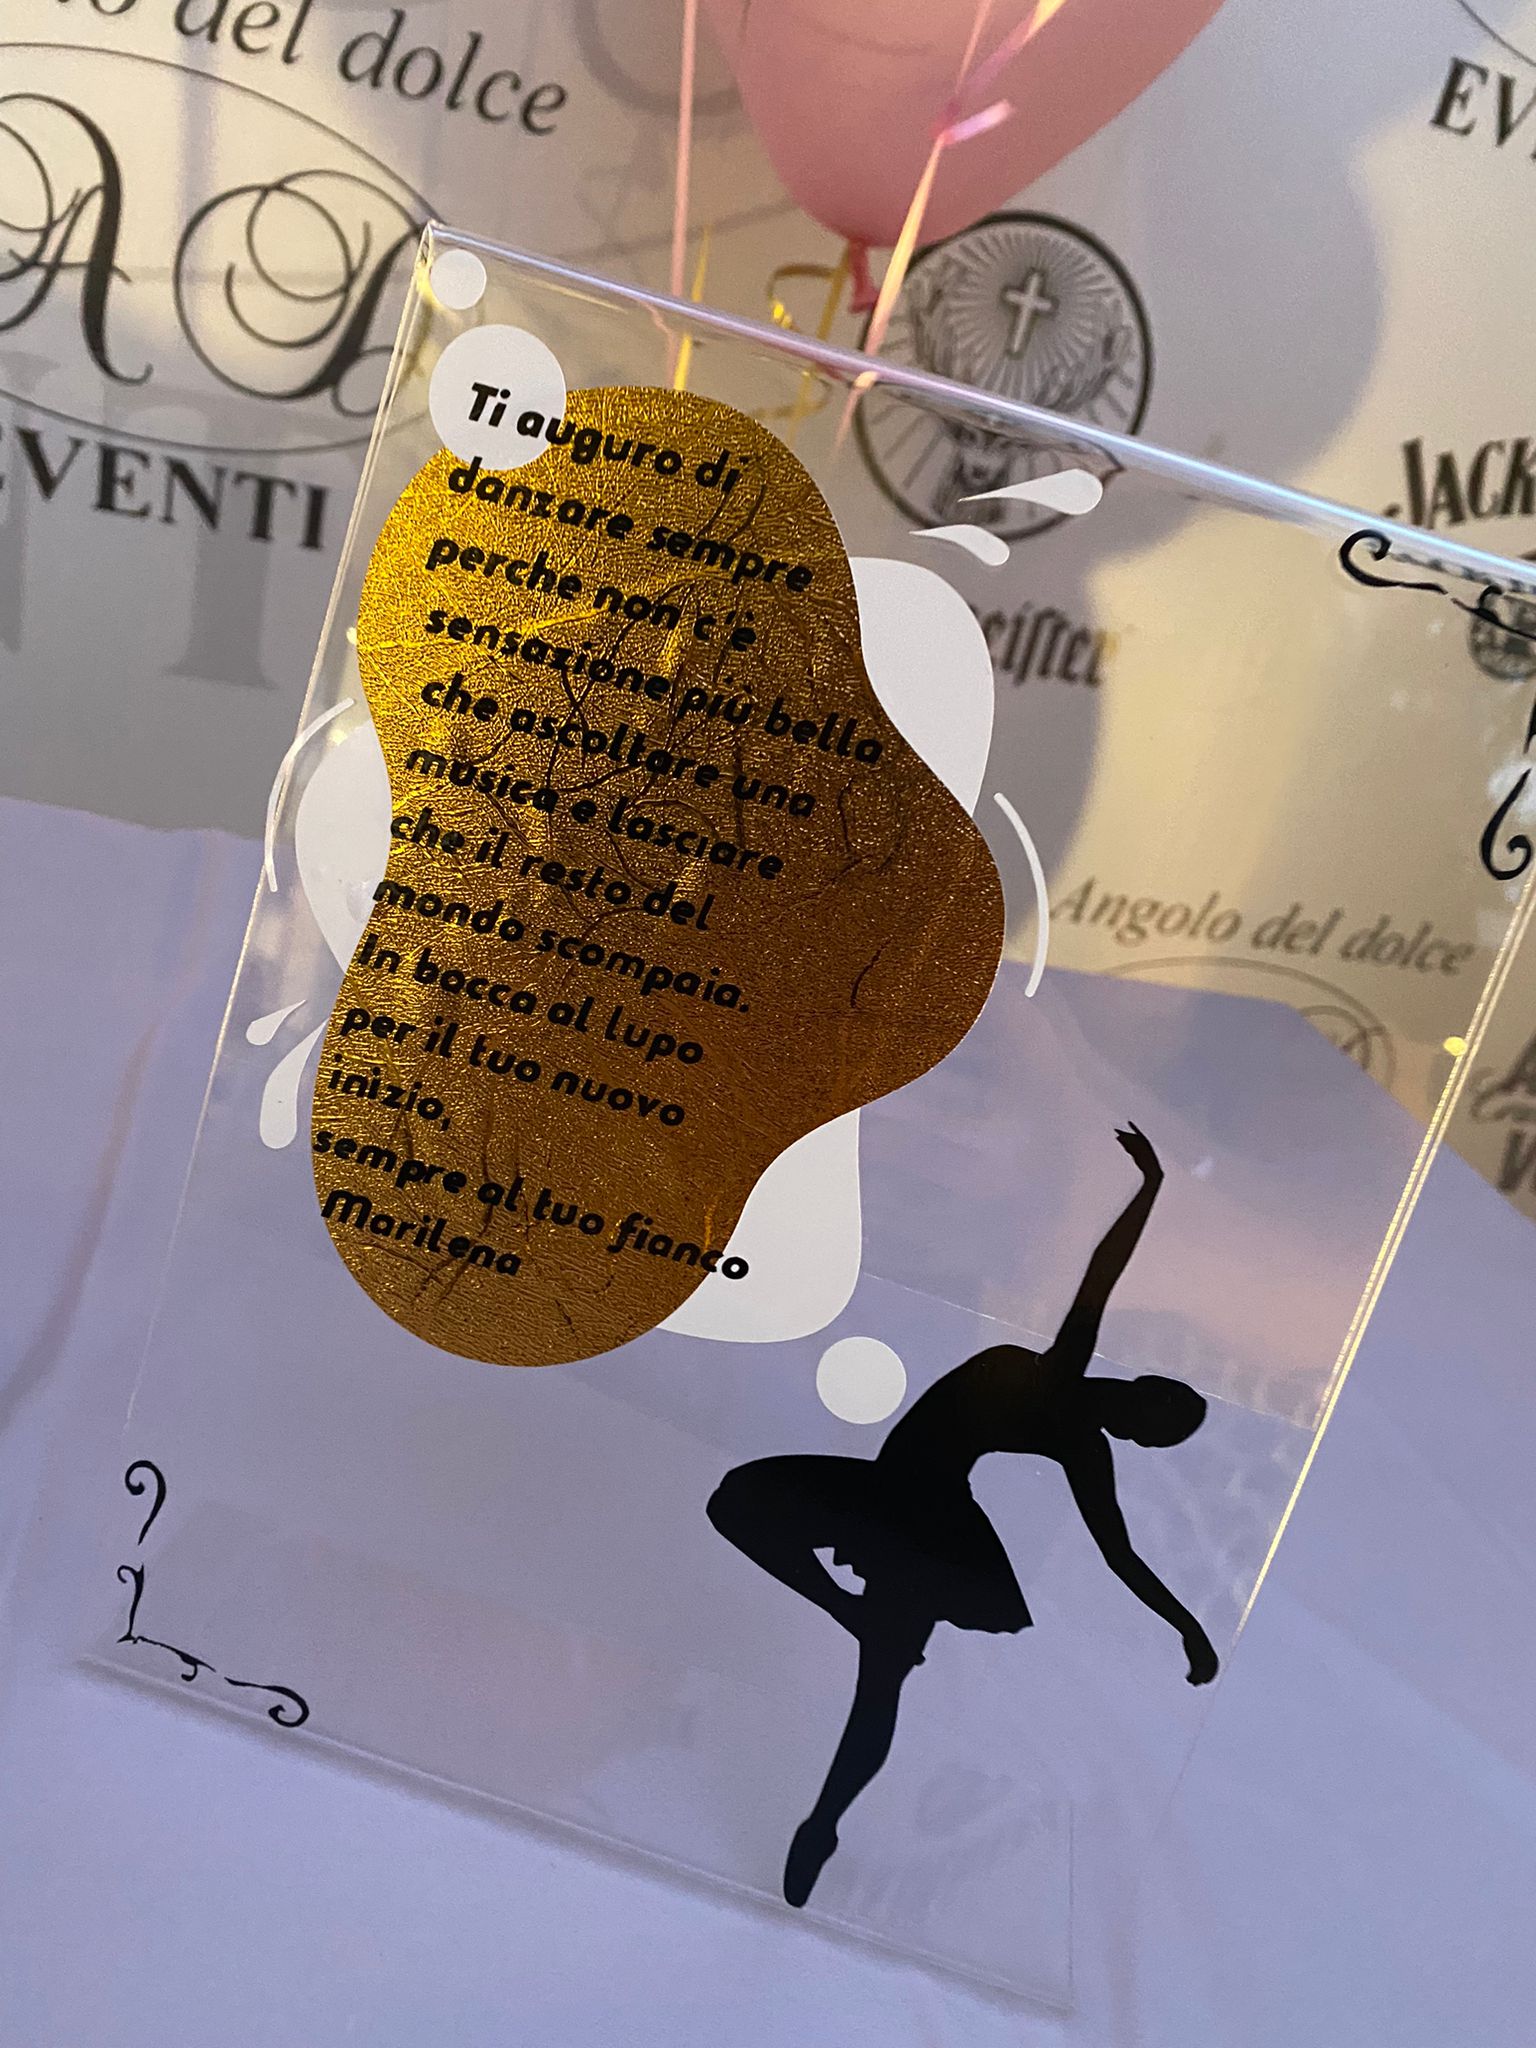 del dolce
AD
EVENTI
EV
JACK
Ti auguro di
danzare sempre
perche non c'è
sensazione più bella
che ascoltare una
musica e lasciare
che il resto del
mondo scompaia.
In bocca al lupo
per il tuo nuovo
inizio,
sempre al tuo fianco
Marilena
eister
Angolo del dolce